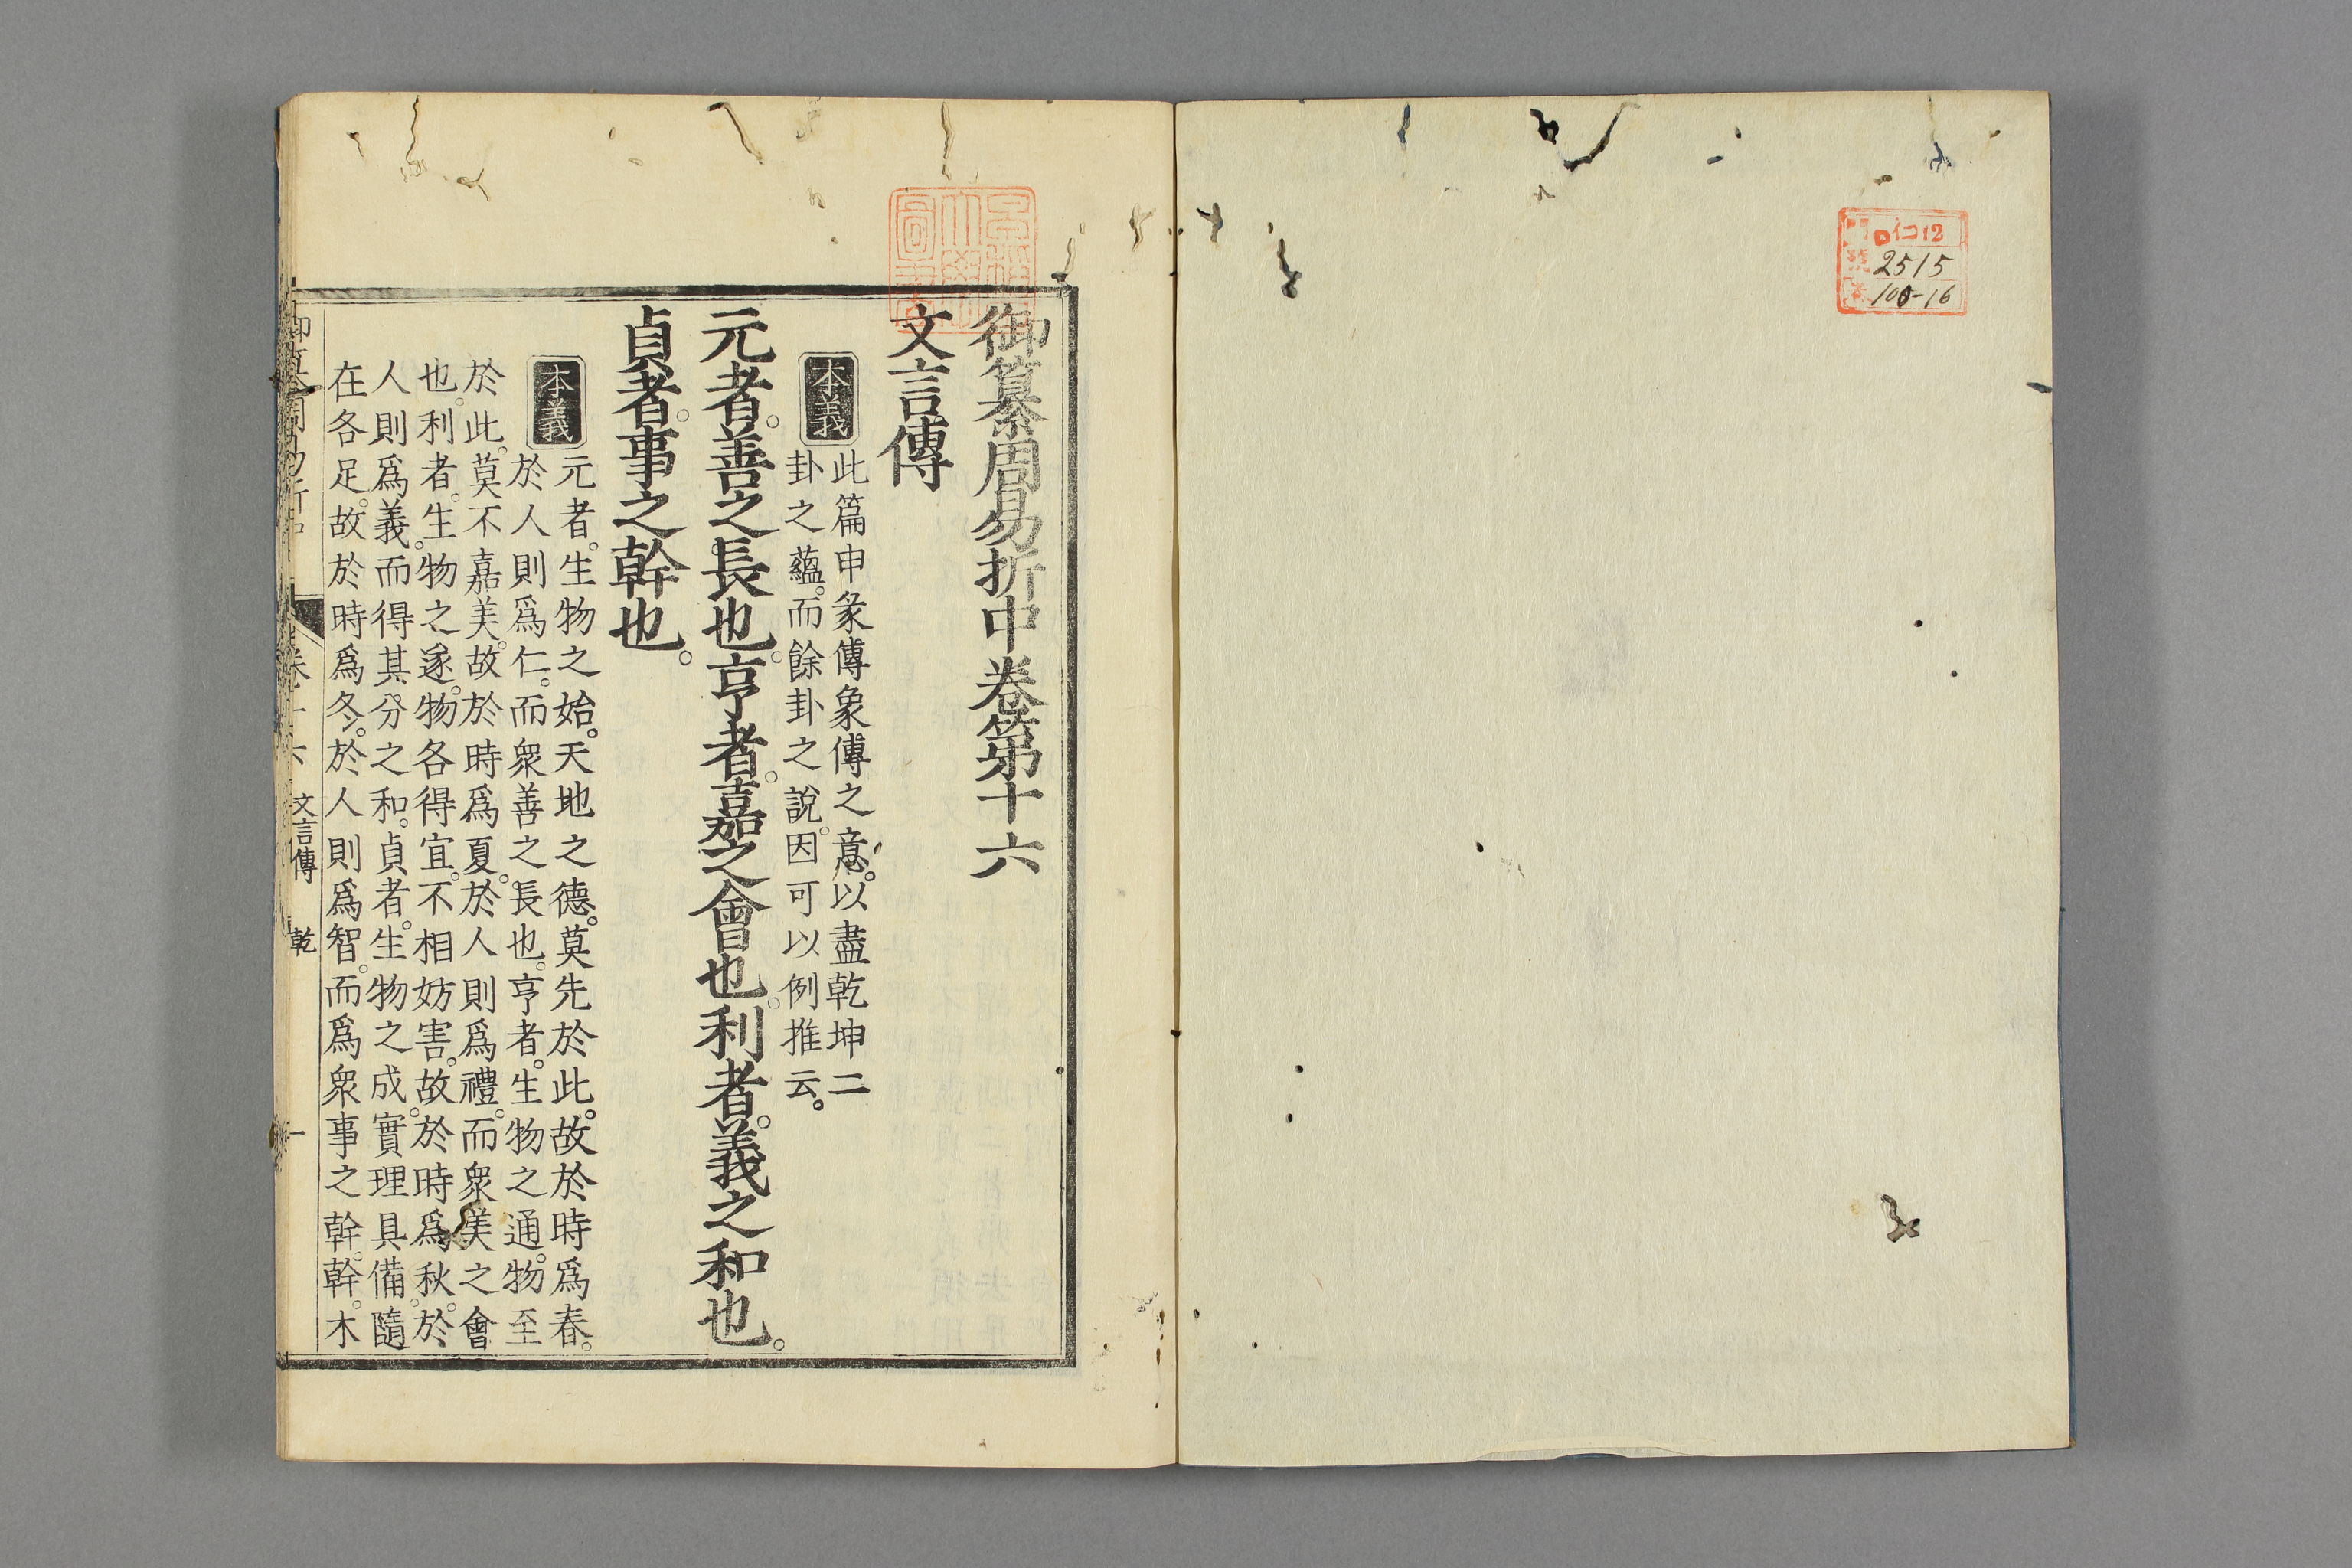 仁12
2515
100-16
御纂周易折中卷第十六
文言傳
本義
此篇申彖傳象傳之意。以盡乾坤二
卦之蘊。而餘卦之說。因可以例推云。
元者。善之長也。亨者。嘉之會也。利者。義之和也。
貞者。事之幹也。
本義
元者。生物之始。天地之德。莫先於此。故於時爲春。
於人則爲仁。而衆善之長也。亨者。生物之通。物至
於此。莫不嘉美。故於時爲夏。於人則爲禮。而衆美之會
也。利者。生物之遂。物各得宜。不相妨害。故於時爲秋。於
人則爲義。而得其分之和。貞者。生物之成。實理具備。隨
在各足。故於時爲冬。於人則爲智。而爲衆事之幹。幹。木
卷十六 文言傳 乾 一